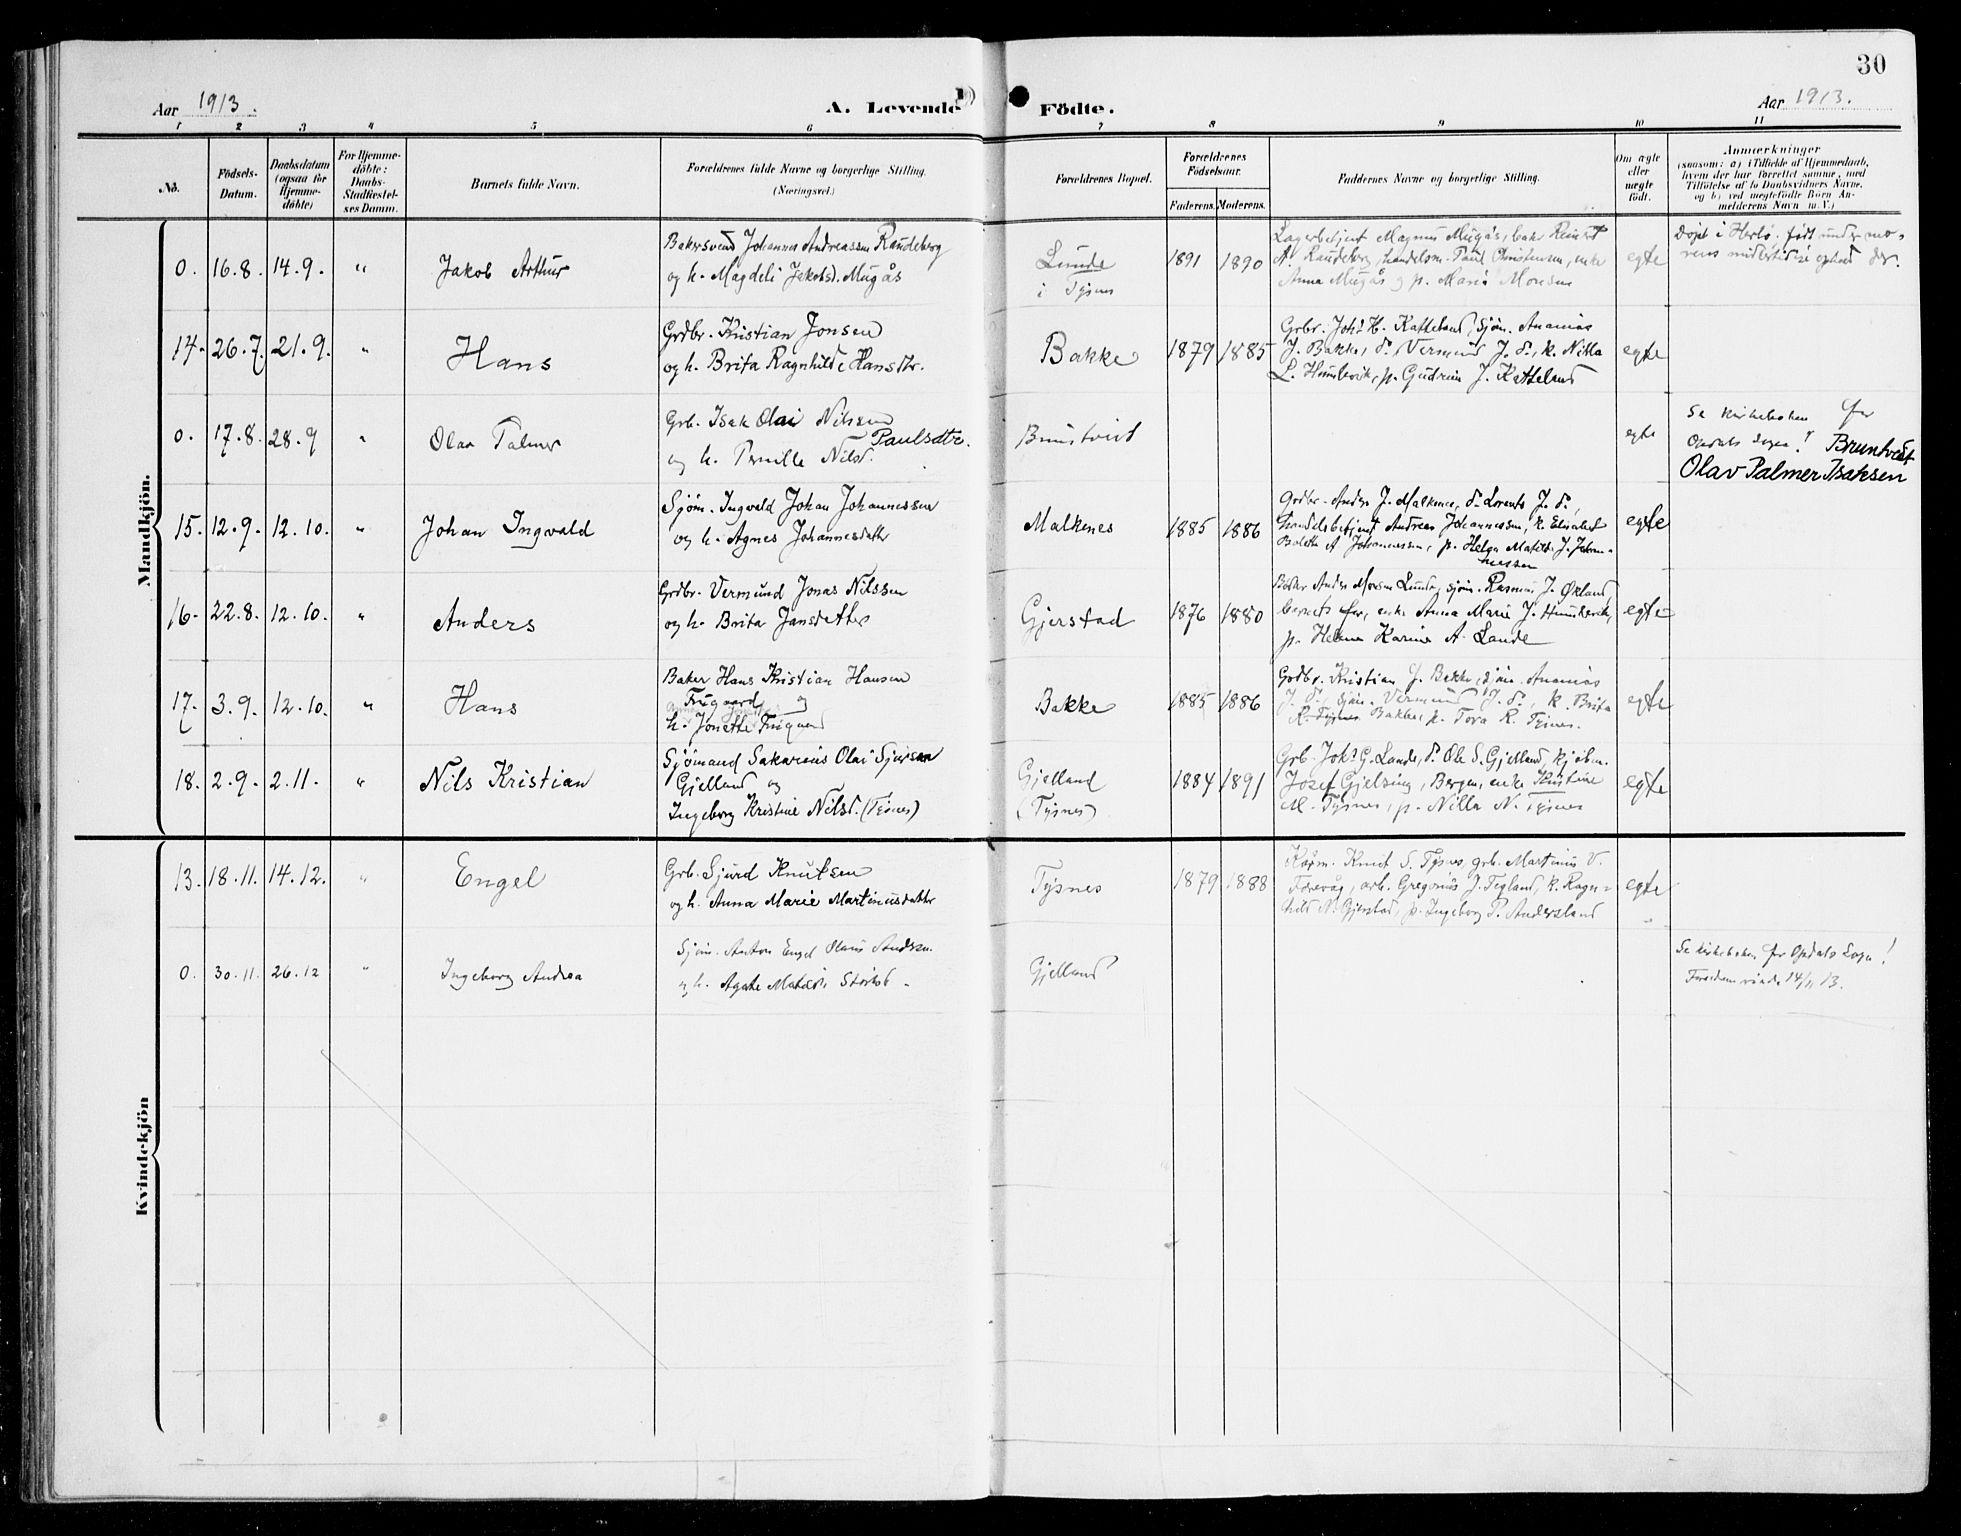 30
Aar 1913.
A. Levende Födte.
Aar 1913.
1 2 3 4 5 6 7 8 9 10 11
No.
Födsels-Datum.
Daabsdatum (ogsaa for Hjemme-döbte)
For Hjemme-döbte: Daabs-Stadfæstel-ses Datum.
Barnets fulde Navn.
Forældrenes fulde Navne og borgerlige Stilling.
(Næringsvei.)
Forældrenes Bopæl.
Forældrenes Födselsaar.
Faderens. Moderens.
Faddernes Navne og borgerlige Stilling.
Om ægte eller uægte födt.
Anmærkninger
(saasom: a) i Tilfælde af Hjemmedaab, hvem der har forrettet samme, med Tilföielse af to Daabsvidners Navne, og b) ved uegtefödte Börn An-melderens Navn m. V.)
Mandkjön.
0. 16.8. 14.9. " Jakob Arthur
Bakersvend Johannes Andreassen Raudeberg
og h. Magdeli Jakobsd. Mugås
Lunde
i Tysnes
1891 1890
Lagerbetjent Magnus Mugås, bakr Reinert
A. Raudeberg, handelsm. Paul Christensen, enke
Anna Mugås og p. Marie Monsen
egte
Døpt i Herlø, født under mo-
rens midlertidige ophold der.
14. 26.7. 21.9. " Hans
Grdbr. Kristian Jonsen
og h. Brita Ragnhild Hansdtr.
Bakke
1879 1885
Grbr. Johs H. Katteland, sjøm. Ananias
J. Bakke, s., Vermund J. s., k. Nilla
L. Humlevik, p. Gudrun J. Katteland
egte
0. 17.8. 28.9 " Olav Palmer
Grb. Isak Olai Nilssen
Paulsdtr.
og h. Pernille Nilsd.
Bruntveit
egte
Se kirkeboken for
Opdals Sogn! Bruntveit
Olav Palmer Isaksen
15. 12.9. 12.10. " Johan Ingvald
Sjøm. Ingvald Johan Johannessen
og h. Agnes Johannesdatter
Malkenes
1885 1886
Grdbr. Anders J. Malkenes, s. Lorents J. s.,
handelsbetjent Andreas Johannessen, k. Elisabet
Bolette A Johannessen, p. Helga Matilde J. Johan-
nessen
egte
16. 22.8. 12.10. " Anders
Grdbr. Vermund Jonas Nilssen
og h. Brita Jansdatter
Gjerstad
1876 1880
Anders Monsen Lunde, sjøm. Rasmus J. Økland,
barnets far, enke Anna Marie J. Humlevik,
p. Helene Karine A. Lande
egte
17. 3.9. 12.10. " Hans
Baker Hans Kristian Hansen
Frigaard og
h. Jonette Frigaard
Bakke
1885 1886
Grdbr. Kristian J. Bakke, sjøm. Ananias
J. s., sjøm. Vermund J. s., k. Brita
R. Tysnes Bakke, p. Tora R. Tysnes.
egte
18. 2.9. 2.11. " Nils Kristian
Sjømand Sakarius Olai Sjursen
Gjelland og
Ingeborg Kristine Nilsd. (Tysnes)
Gjelland
(Tysnes)
1884 1891
Grb. Johs G. Lande, s. Ole S. Gjelland, kjøbm.
Josef Gjelsvig, Bergen, enke Kristine
M. Tysnes, p. Nilla N. Tysnes
egte
Kvindekjön
13. 18.11. 14.12. " Engel
Grb. Sjurd Knutsen
og h. Anna Marie Martinusdatter
Tysnes
1879 1888
Kjøpm. Knut S. Tysnes, grb. Martinus V.
Forevåg, arb. Gregorius J. Tegland, k. Ragn-
hild N. Gjerstad, p. Ingeborg P. Andersland
egte
0. 30.11. 26.12 " Ingeborg Andrea
Sjøm. Anton Engel Olaus Andersen
og h. Agate Matilde
Gjelland
"
Se kirkeboken for Opdals Sogn!
14/11 13.